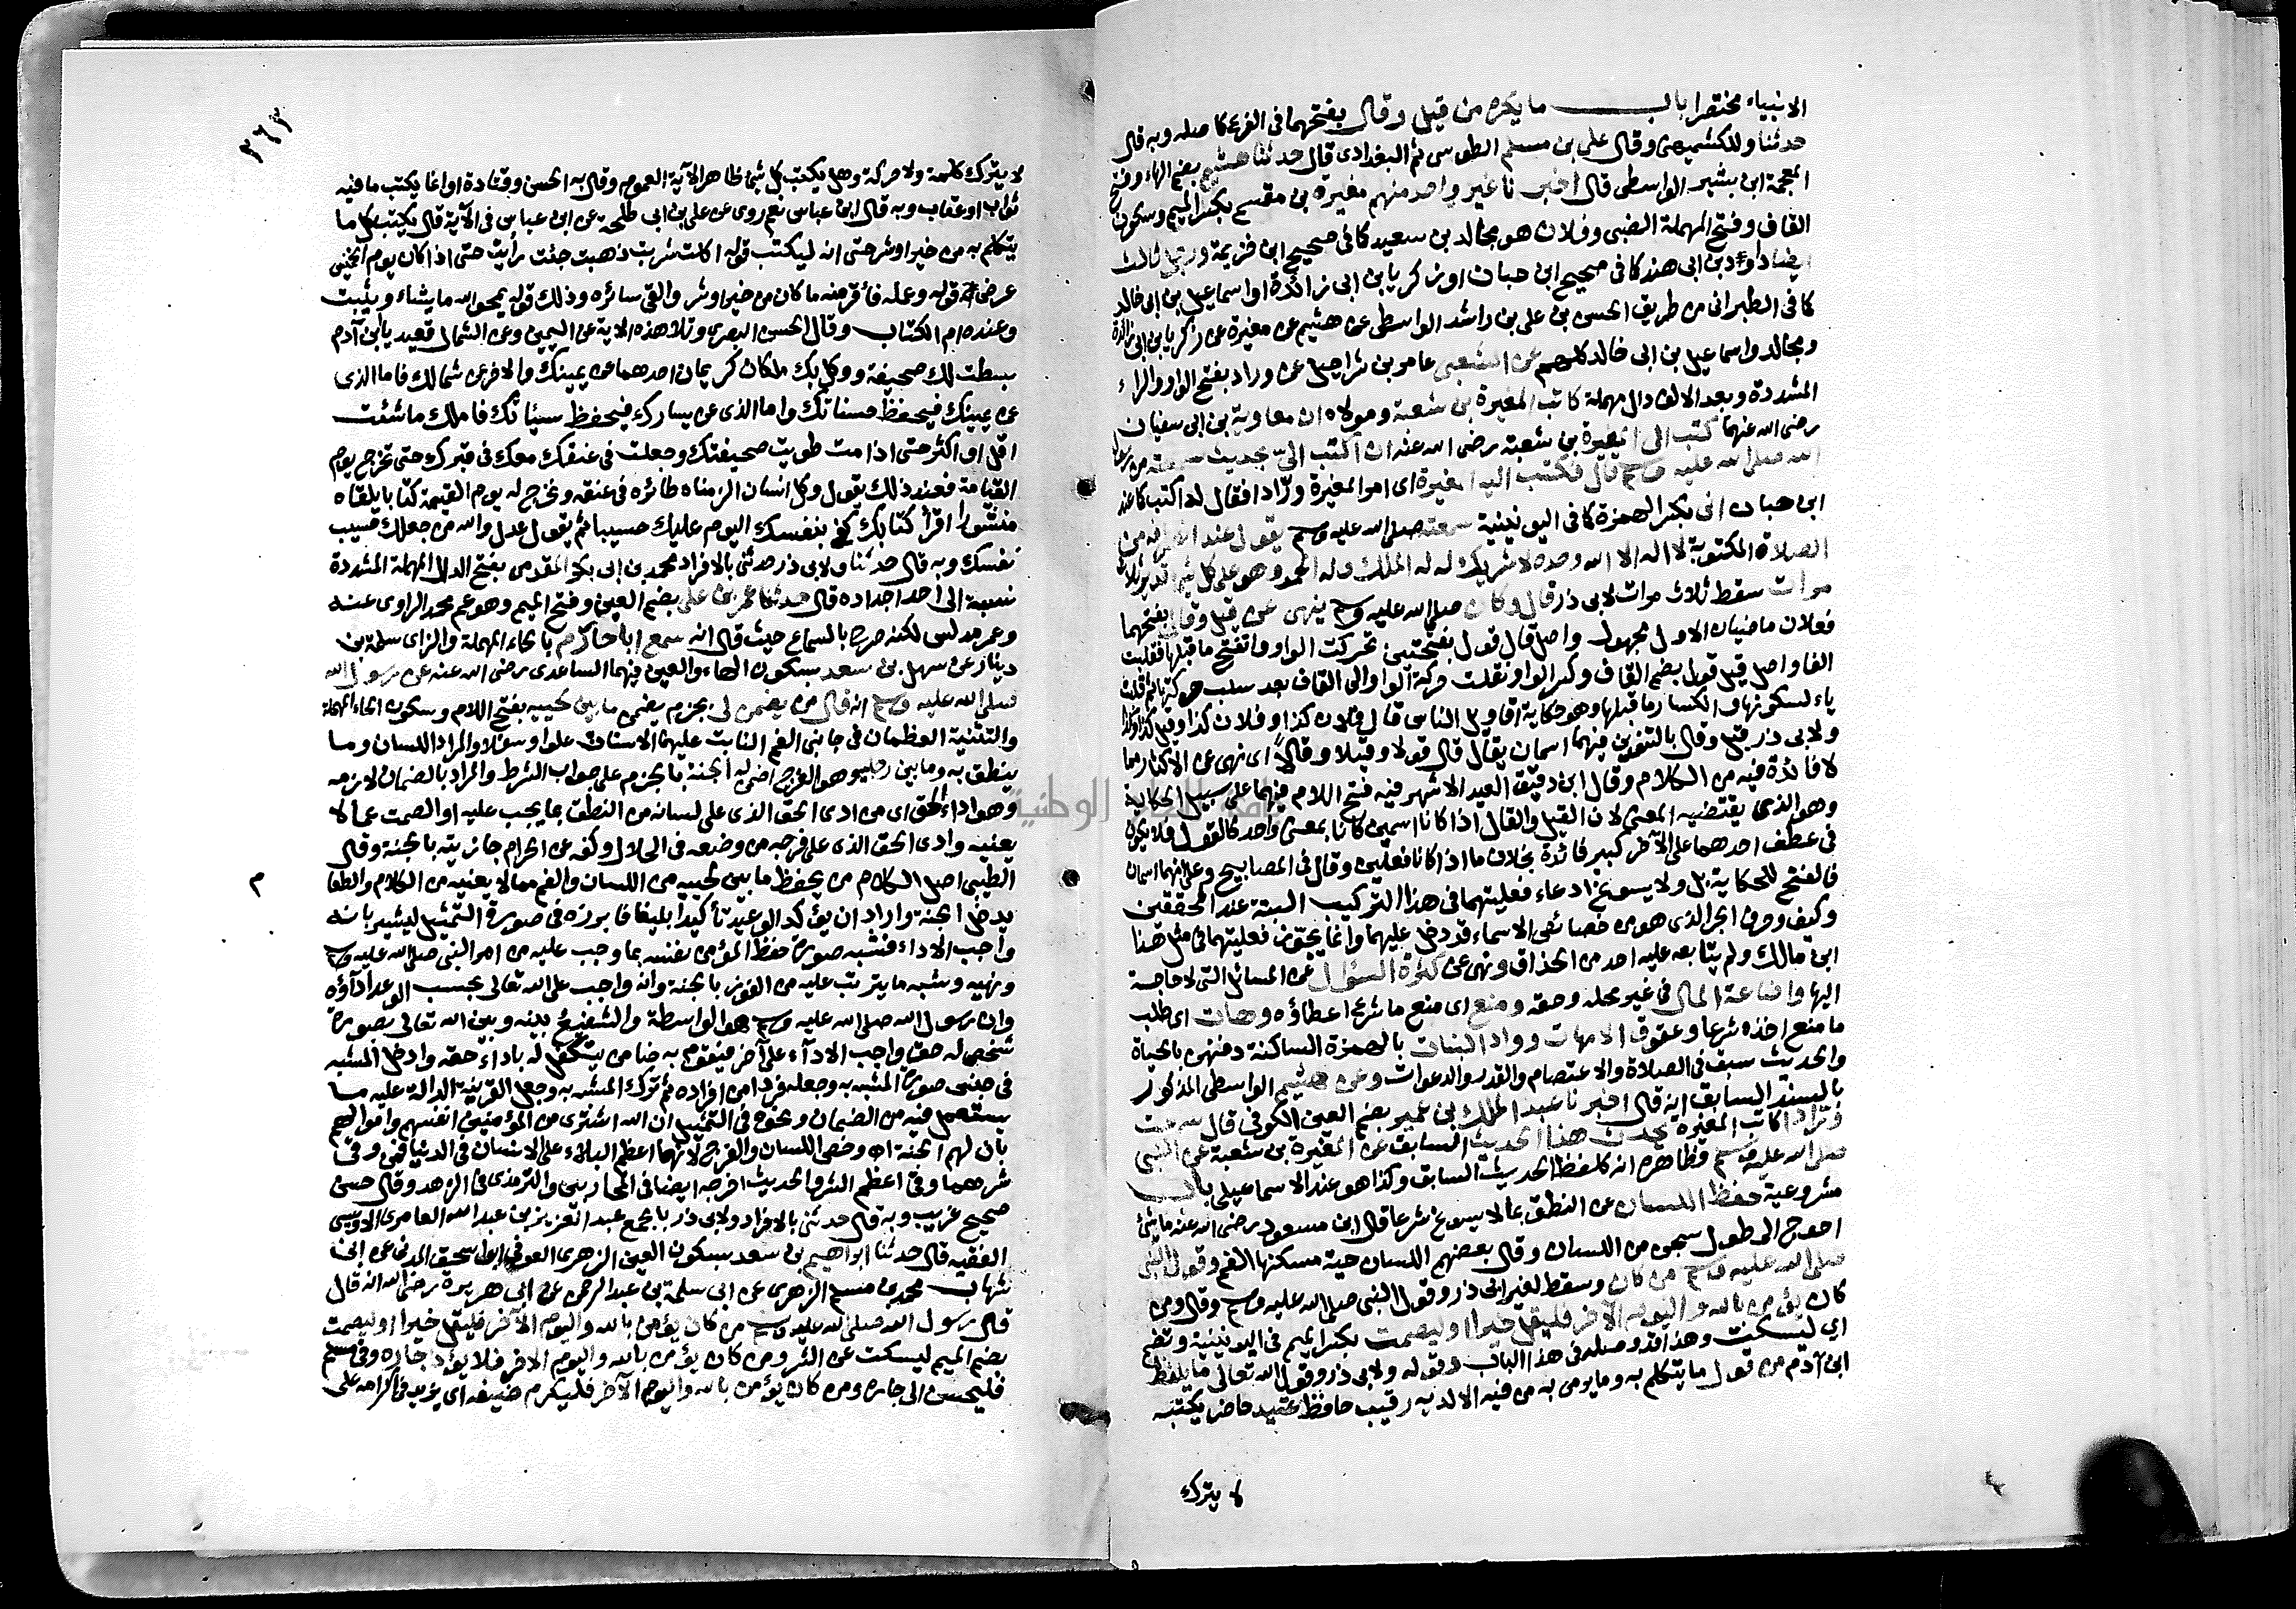 الانبياء مختصرا باب ما يكره من قيل وقال بفتحهما في الفرع كاصله وبه قال
حدثنا وللكشميهني وقال علي بن مسلم الطوسي ثم البغدادي قال حدثنا هشيم بضم الهاء وفتح
المعجمة ابن بشير الواسطي قال اخبرنا غير واحد منهم مغيرة بن مقسم بكسر الميم وسكون
القاف وفتح المهملة الضبي وفلان هو مجالد بن سعيد كما في صحيح ابن خزيمة ورجل ثالث
ايضا داود بن ابي هند كما في صحيح ابن حبان او زكريا بن ابي زائدة او اسماعيل بن ابي خالد
كما في الطبراني من طريق الحسن بن علي بن راشد الواسطي عن هشيم عن مغيرة عن زكريا بن ابي زائدة
ومجالد واسماعيل بن ابي خالد كلهم عن الشعبي عامر بن شراحيل عن وراد بفتح الواو والراء
المشددة وبعد الالف دال مهملة كاتب المغيرة بن شعبة ومولاه ان معاوية بن ابي سفيان
رضي الله عنهما كتب الى المغيرة بن شعبة رضي الله عنه ان اكتب الي بحديث سمعته من رسول
الله صلى الله عليه وسلم قال فكتب اليه المغيرة اي امر المغيرة ورادا فقال له اكتب كما عند
ابن حبان اني بكسر الهمزة كما في اليونينية سمعته صلى الله عليه وسلم يقول عند انصرافه من
الصلاة المكتوبة لا اله الا الله وحده لا شريك له له الملك وله الحمد وهو على كل شيء قدير ثلاث
مرات سقط ثلاث مرات لابي ذر قال وكان صلى الله عليه وسلم ينهى عن قيل وقال بفتحهما
فعلان ماضيان الاول مجهول واصل قال قول بفتحتين تحركت الواو وانفتح ما قبلها فقلبت
الفا واصل قيل قول بضم القاف وكسر الواو نقلت حركة الواو الى القاف بعد سلب حركتها ثم قلبت
ياء لسكونها وانكسار ما قبلها وهو حكاية اقاويل الناس قال فلان كذا وفلان كذا وقيل كذا وكذا
ولابي ذر قيل وقال بالتنوين فيهما اسمان يقال قال قولا وقيلا وقالا اي نهى عن الاكثار مما
لا فائدة فيه من الكلام وقال ابن دقيق العيد الاشهر فيه فتح اللام فيهما على سبيل الحكاية
وهو الذي يقتضيه المعنى لان القيل والقال اذا كانا اسمين كانا بمعنى واحد كالقول فلا يكون
في عطف احدهما على الآخر كبير فائدة بخلاف ما اذا كانا فعلين وقال في المصابيح وعلى انهما اسمان
فالفتح للحكاية بل ولا يسوغ ادعاء فعليتهما في هذا التركيب البتة عند المحققين
وكيف وحرف الجر الذي هو من خصائص الاسماء قد دخل عليهما وانما يجوز فعليتهما في مثل هذا
ابن مالك ولم يتابعه عليه احد من الحذاق ونهى عن كثرة السؤال عن المسائل التي لا حاجة
اليها واضاعة المال في غير محله وحقه ومنع اي منع ما شرع اعطاؤه وهات اي طلب
ما منع اخذه شرعا وعقوق الامهات وواد البنات بالهمزة الساكنة دفنهن بالحياة
والحديث سبق في الصلاة والاعتصام والقدر والدعوات وعن هشيم الواسطي المذكور
بالسند السابق انه قال اخبرنا عبد الملك بن عمير بضم العين الكوفي قال سمعت
ورادا كاتب المغيرة يحدث هذا الحديث السابق عن المغيرة بن شعبة عن النبي
صلى الله عليه وسلم وظاهره انه كلفظ الحديث السابق وكذا هو عند الاسماعيلي باب
مشروعية حفظ اللسان عن النطق بما لا يسوغ شرعا قال ابن مسعود رضي الله عنه ما شئ
احوج الى طول سجن من اللسان وقال بعضهم اللسان حية مسكنها الفم وقول النبي
صلى الله عليه وسلم من كان وسقط لغير ابي ذر وقول النبي صلى الله عليه وسلم وقال ومن
كان يؤمن بالله واليوم الآخر فليقل خيرا او ليصمت بكسر الميم في اليونينية وتضم
اي ليسكت وهذا قد وصله في هذا الباب وقوله ولابي ذر وقول الله تعالى ما يلفظ
ابن آدم من قول ما يتكلم به وما يرمي به من فيه الا لديه رقيب حافظ عتيد حاضر يكتبه
لا يترك
٢٦٣
لا يترك كلمة ولا حركة وهل يكتب كل شيء ظاهر الآية العموم وقال به الحسن وقتادة او انما يكتب ما فيه
ثواب او عقاب وبه قال ابن عباس نعم روى عن علي بن ابي طلحة عن ابن عباس في الآية قال يكتب كل ما
يتكلم به من خير او شر حتى انه ليكتب قوله اكلت شربت ذهبت جئت رأيت حتى اذا كان يوم الخميس
عرض قوله وعمله فأقر منه ما كان من خير او شر والقي سائره وذلك قوله يمحو الله ما يشاء ويثبت
وعنده ام الكتاب وقال الحسن البصري وتلا هذه الاية عن اليمين وعن الشمال قعيد يا ابن آدم
بسطت لك صحيفة ووكل بك ملكان كريمان احدهما عن يمينك والاخر عن شمالك فاما الذي
عن يمينك فيحفظ حسناتك واما الذي عن يسارك فيحفظ سيئاتك فاملك ما شئت
اقل او اكثر حتى اذا مت طويت صحيفتك وجعلت في عنقك معك في قبرك حتى تخرج يوم
القيامة فعند ذلك يقول وكل انسان الزمناه طائره في عنقه ونخرج له يوم القيمة كتابا يلقاه
منشورا اقرأ كتابك كفى بنفسك اليوم عليك حسيبا ثم يقول عدل والله من جعلك حسيب
نفسك وبه قال حدثنا ولابي ذر حدثني بالافراد محمد بن ابي بكر المقدمي بفتح الدال المهملة المشددة
نسبة الى احد اجداده قال حدثنا عمر بن علي بضم العين وفتح الميم وهو عم محمد الراوي عنه
وعمر مدلس لكنه صرح بالسماع حيث قال انه سمع ابا حازم بالحاء المهملة والزاي سلمة بن
دينار عن سهل بن سعد بسكون الهاء والعين فيهما الساعدي رضي الله عنه عن رسول الله
صلى الله عليه وسلم انه قال من يضمن لي بجزم يضمن ما بين لحييه بفتح اللام وسكون الحاء المهملة
والتثنية العظمان في جانبي الفم النابت عليهما الاسنان علوا وسفلا والمراد اللسان وما
ينطق به وما بين رجليه وهو الفرج اضمن له الجنة بالجزم على جواب الشرط والمراد بالضمان لازمه
وهو اداء الحق اي من ادى الحق الذي على لسانه من النطق بما يجب عليه او الصمت عما لا
يعنيه وادى الحق الذي على فرجه من وضعه في الحلال وكفه عن الحرام جازيته بالجنة وقال
الطيبي اصل الكلام من يحفظ ما بين لحييه من اللسان والفم مما لا يعنيه من الكلام والطعام
م
يدخل الجنة واراد ان يؤكد الوعيد تأكيدا بليغا فابرزه في صورة التمثيل ليشير بانه
واجب الاداء فشبه صورة حفظ المؤمن نفسه بما وجب عليه من امر النبي صلى الله عليه وسلم
ونهيه وشبه ما يترتب عليه من الفوز بالجنة وانه واجب على الله تعالى بحسب الوعد اداؤه
وان رسول الله صلى الله عليه وسلم هو الواسطة والشفيع بينه وبين الله تعالى بصورة
شخص له حق واجب الاداء على آخر فيقوم به ضامن يتكفل له باداء حقه وادخل المشبه
في جنس صورة المشبه به وجعله فردا من افراده ثم ترك المشبه به وجعل القرينة الدالة عليه ما
يستعمل فيه من الضمان ونحوه في التمثيل ان الله اشترى من المؤمنين انفسهم واموالهم
بان لهم الجنة اه وخص اللسان والفرج لانهما اعظم البلاء على الانسان في الدنيا فمن وقي
شرهما وقي اعظم الشر والحديث اخرجه ايضا في المحاربين والترمذي في الزهد وقال حسن
صحيح غريب وبه قال حدثني بالافراد ولابي ذر بالجمع عبد العزيز بن عبد الله العامري الاويسي
الفقيه قال حدثنا ابراهيم بن سعد بسكون العين الزهري العوفي ابو اسحق المدني عن ابن
شهاب محمد بن مسلم الزهري عن ابي سلمة بن عبد الرحمن عن ابي هريرة رضي الله انه قال
قال رسول الله صلى الله عليه وسلم من كان يؤمن بالله واليوم الآخر فليقل خيرا او ليصمت
بضم الميم ليسكت عن الشر ومن كان يؤمن بالله واليوم الآخر فلا يؤذ جاره وفي مسلم
فليحسن الى جاره ومن كان يؤمن بالله واليوم الآخر فليكرم ضيفه اي يزيد في اكرامه على